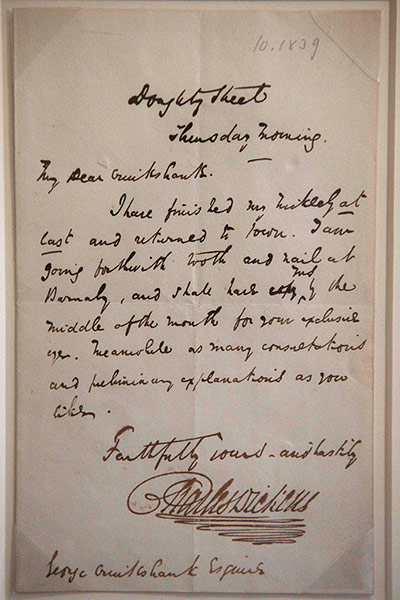 10.1839
Doughty Street
Thursday Morning.
My Dear Cruikshank.
I have finished my Nickleby at
last and returned to town. I am
going forthwith tooth and nail at
Barnaby, and shall have MS by the
middle of the month for your exclusive
eye. Meanwhile as many consultations
and preliminary explanations as you
like.
Faithfully Yours - and hastily
Charles Dickens
George Cruikshank Esquire